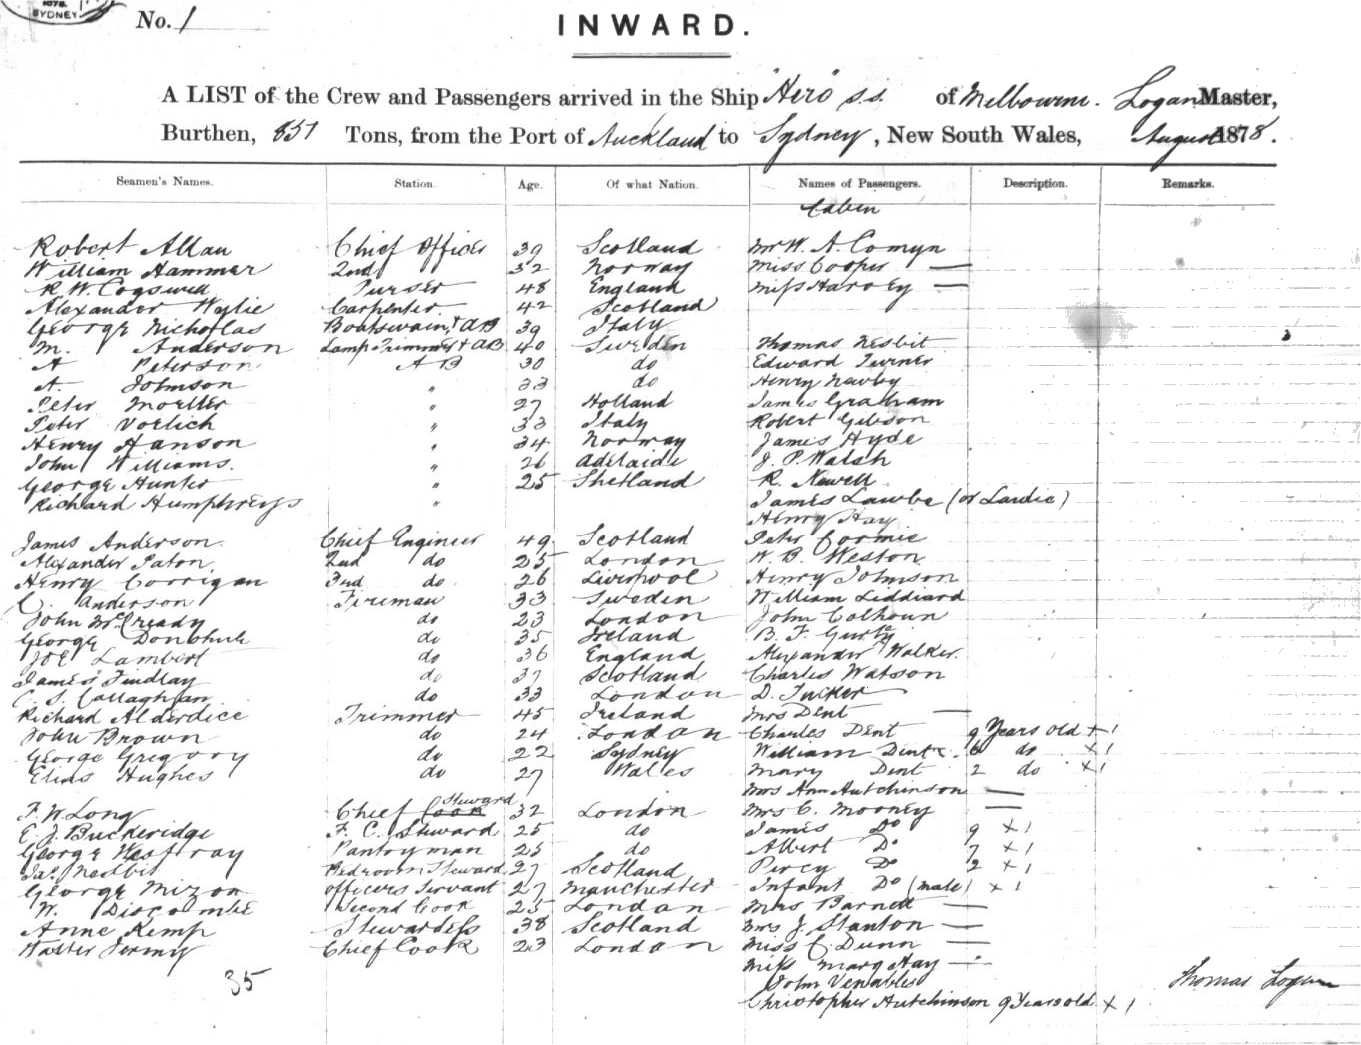 1878.
SYDNEY
No. 1
INWARD.
A LIST of the Crew and Passengers arrived in the Ship "Hero" s.s. of Melbourne. Logan Master,
Burthen, Tons, from the Port of Auckland to Sydney, New South Wales, August 1878.
Seamen's Names. Station. Age. Of what Nation. Names of Passengers. Description. Remarks.
Cabin
Robert Allan Chief Officer 39 Scotland Mr W. A. Comyn
William Hammer 2nd 32 Norway Miss Cooper —
R W. Cogswell Purser 48 England Miss Harvey —
Alexander Wylie Carpenter 42 Scotland
George Nicholas Boatswain & AB 39 Italy
M. Anderson Lamp Trimmer & AB 40 Sweden Thomas Nesbit
A Peterson A B 30 do Edward Turner
A. Johnson " 33 do Henry Newby
Peter Moeller " 27 Holland James Graham
Peter Vorlich " 33 Italy Robert Gibson
Henry Hanson " 34 Norway James Hyde
John Williams. " 26 Adelaide J. P. Walsh
George Hunter " 25 Shetland R. Newell
Richard Humphreys " James Lawbe (or Lardie)
Henry Hay
James Anderson Chief Engineer 49 Scotland Peter Cormie
Alexander Paton 2nd do 25 London W. B. Weston
Henry Corrigan 3rd do 26 Liverpool Henry Johnson
C. Anderson Fireman 33 Sweden William Leddiard
John McCready do 23 London John Calhoun
George Donohue do 35 Ireland B. F.
Joe Lambert do 36 England Alexander Walker.
James Findlay do 37 Scotland Charles Watson
C. S. Callaghan do 33 London D. Tucker
Richard Alderdice Trimmer 45 Ireland Mrs Dent —
John Brown do 24 London Charles Dent 9 Years old × 1
George Gregory do 22 Sydney William Dent 6 do × 1
Elias Hughes do 27 Wales Mary Dent 2 do × 1
Mrs Ann Hutchinson —
F. W. Long Chief Cook Steward 32 London Mrs C. Mooney —
E J. Buckeridge F. C. Steward 25 do James Do 9 × 1
George Westray Pantryman 25 do Albert Do 7 × 1
Jas. Nesbit Bedroom Steward 27 Scotland Percy Do 2 × 1
George Mizon Officers Servant 27 Manchester Infant Do (male) × 1
W. Discombe Second Cook 25 London Mrs Barnett —
Anne Kemp Stewardess 38 Scotland Mrs J. Stanton —
Walter Jermy Chief Cook 23 London Miss C. Dunn —
Miss Marg Hay —
35 John Venables Thomas Logan
Christopher Hutchinson 9 Years old × 1